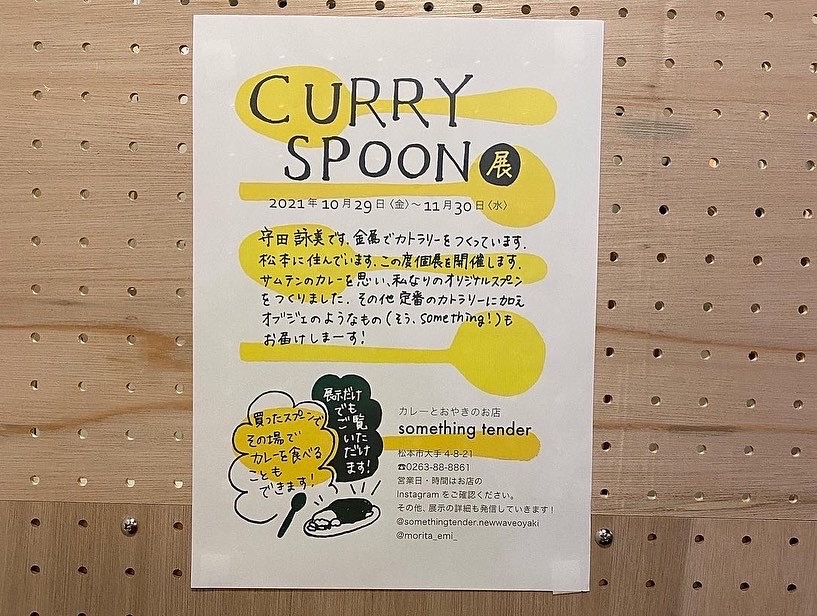 CURRY
SPOON展
2021年10月29日〈金〉〜11月30日〈水〉
守田詠美です。金属でカトラリーをつくっています。
松本に住んでいます。この度個展を開催します。
サムテンのカレーを思い、私なりのオリジナルスプーン
をつくりました。その他定番のカトラリーに加え
オブジェのようなもの(そう、something!)も
お届けしまーす!
展示だけ
でも
ご覧
いた
だけ
ます!
買ったスプーンで
その場で
カレーを食べる
ことも
できます!
カレーとおやきのお店
something tender
松本市大手4-8-21
☎0263-88-8861
営業日・時間はお店の
Instagramをご確認ください。
その他、展示の詳細も発信していきます!
@somethingtender.newwaveoyaki
@morita_emi_